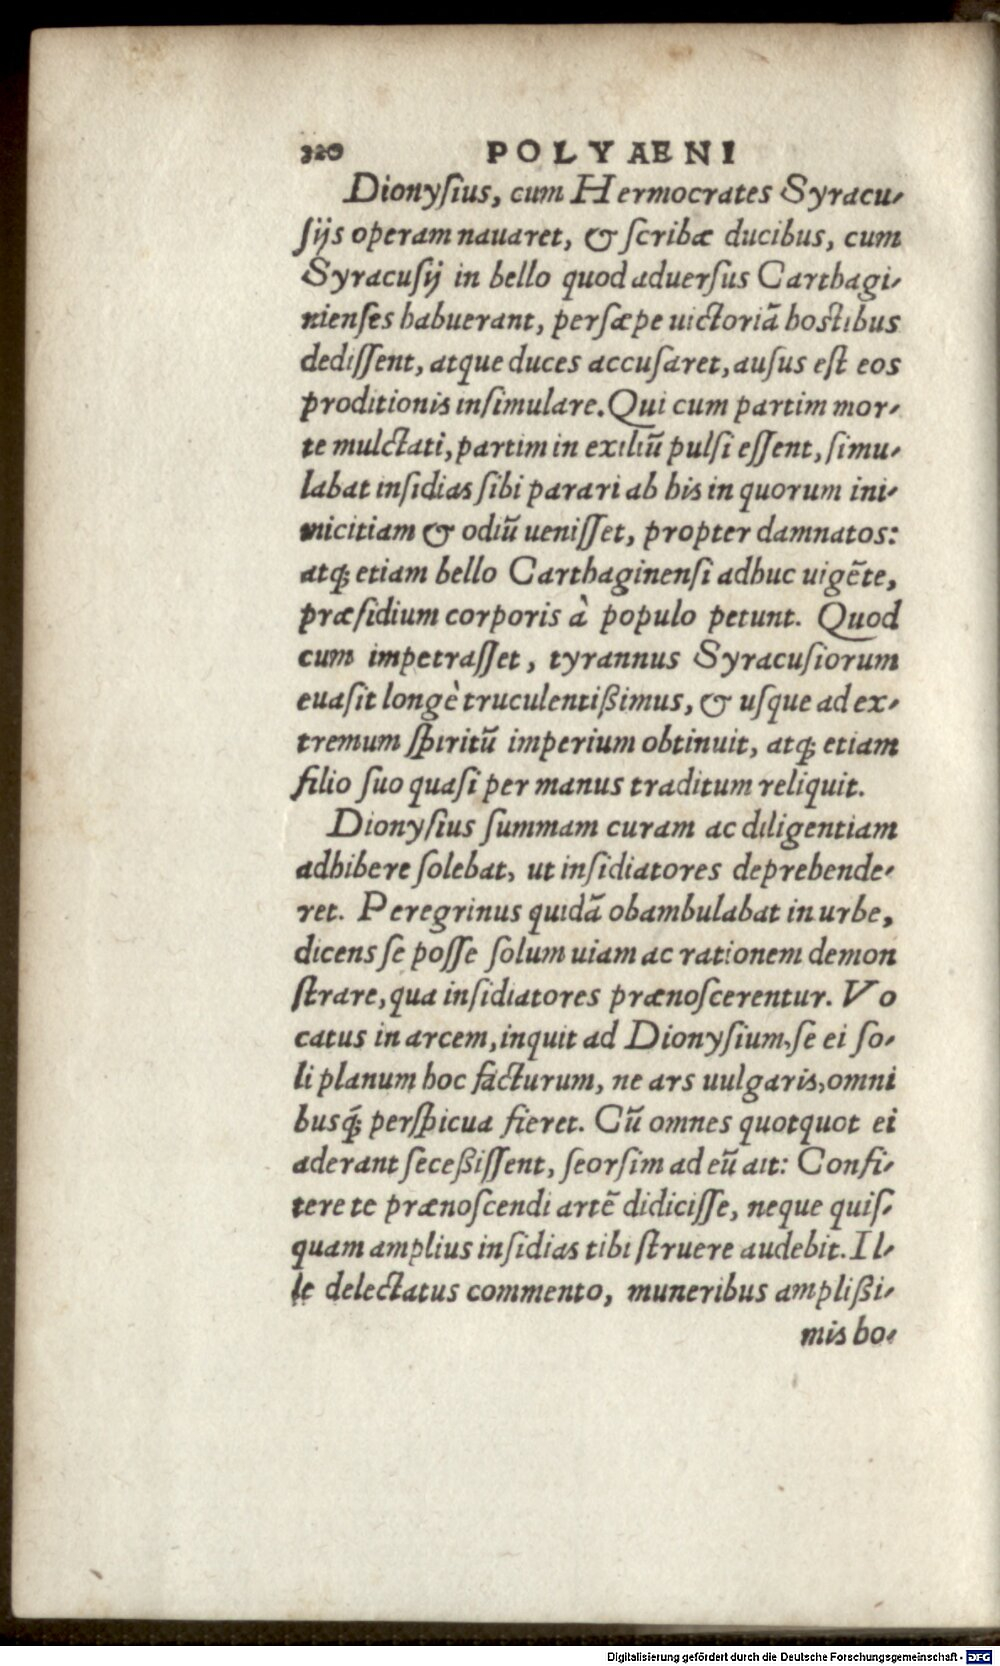 320 POLYAENI
Dionyſius, cum Hermocrates Syracu-
ſijs operam nauaret, & ſcribæ ducibus, cum
Syracuſij in bello quod aduerſus Carthagi-
nienſes habuerant, perſæpe uictoriā hostibus
dediſſent, atque duces accuſaret, auſus eſt eos
proditionis inſimulare. Qui cum partim mor-
te mulctati, partim in exiliū pulſi eſſent, ſimu-
labat inſidias ſibi parari ab his in quorum ini-
micitiam & odiū ueniſſet, propter damnatos:
atq; etiam bello Carthaginenſi adhuc uigēte,
præſidium corporis à populo petunt. Quod
cum impetraſſet, tyrannus Syracuſiorum
euaſit longè truculentißimus, & uſque ad ex-
tremum ſpiritū imperium obtinuit, atq; etiam
filio ſuo quaſi per manus traditum reliquit.
Dionyſius ſummam curam ac diligentiam
adhibere ſolebat, ut inſidiatores deprehende-
ret. Peregrinus quidā obambulabat in urbe,
dicens ſe poſſe ſolum uiam ac rationem demon
ſtrare, qua inſidiatores prænoſcerentur. Vo
catus in arcem, inquit ad Dionyſium, ſe ei ſo-
li planum hoc facturum, ne ars uulgaris, omni
busq́; perſpicua fieret. Cū omnes quotquot ei
aderant ſeceßiſſent, ſeorſim ad eū ait: Confi-
tere te prænoſcendi artē didiciſſe, neque quiſ-
quam amplius inſidias tibi ſtruere audebit. Il-
le delectatus commento, muneribus amplißi-
mis ho-
Digitalisierung gefördert durch die Deutsche Forschungsgemeinschaft - DFG